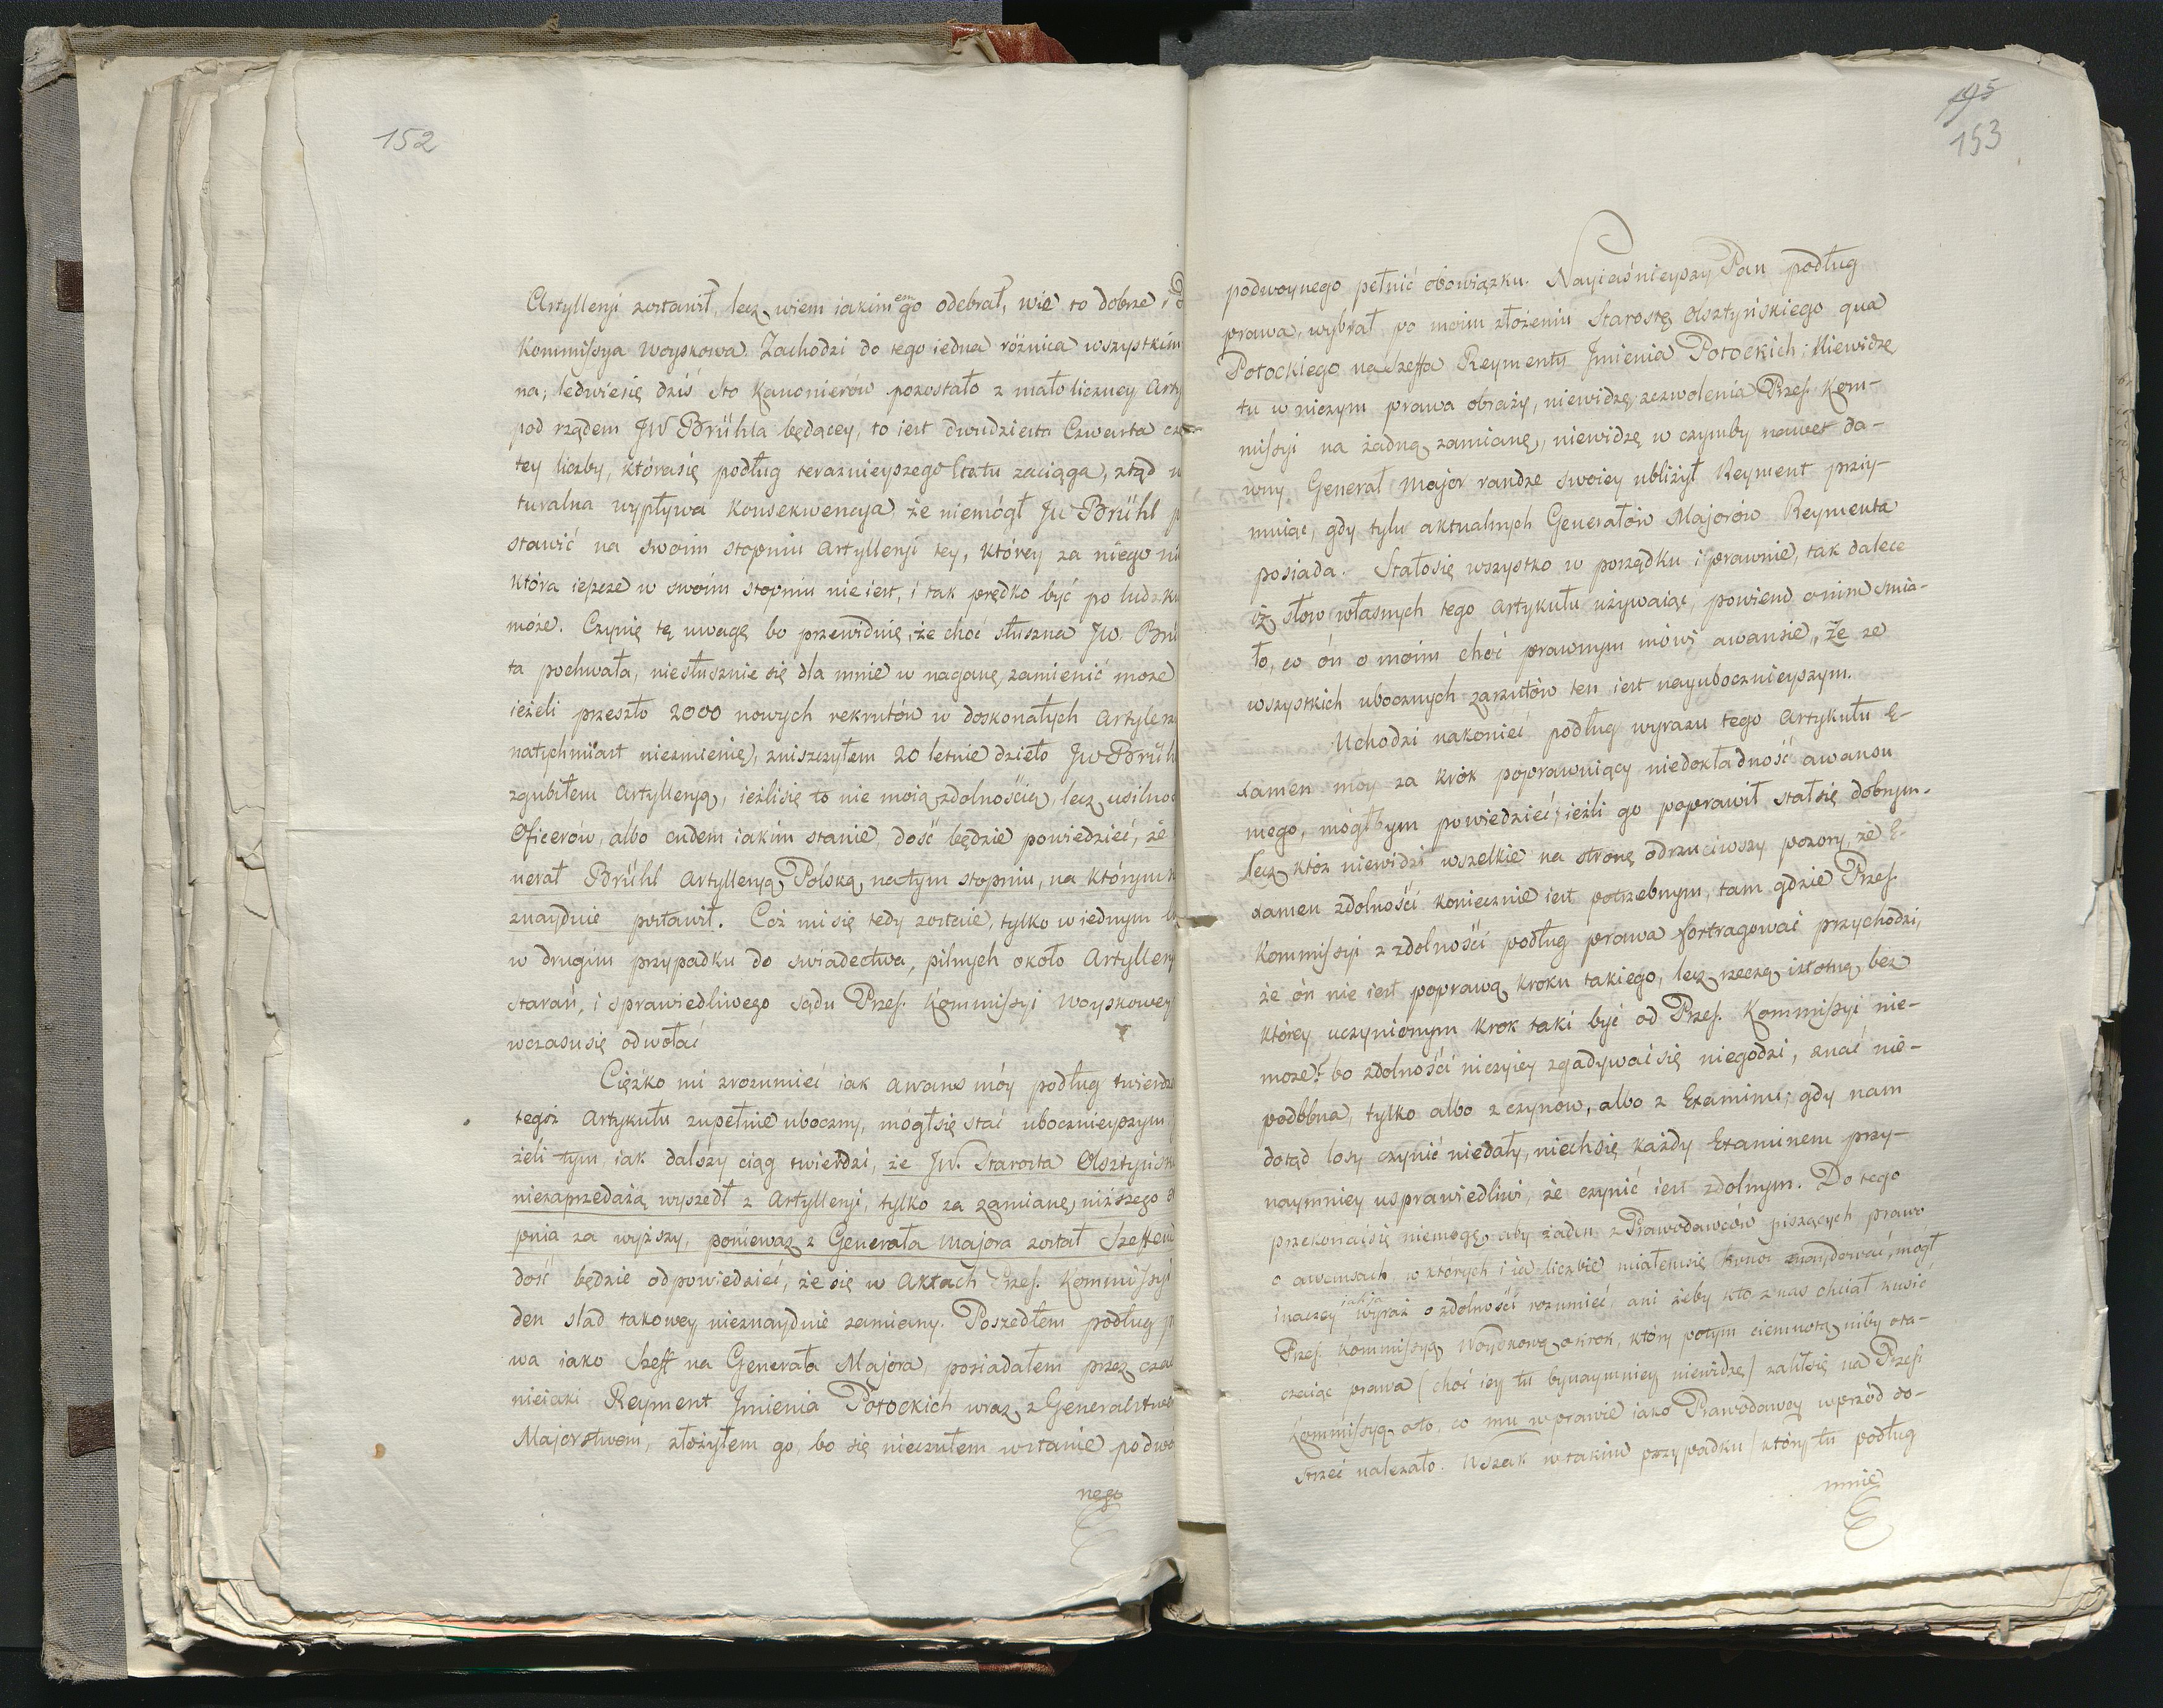 152
Artyllerji zostawił, lecz wiem iakim em go odebrał, wie to dobrze i
Kommissya Woyskowa. Zachodzi do tego iedna różnica wszystkim
na, ledwiesię dziś sto Kanonierów pozostało z mało liczney Arty
pod rządem JW Brühla będącey, to iest dwudziesta Czwarta czę
tey liczby, którasię podług teraznieyszego Etatu zaciąga, ztąd n
turalna wypływa Konsekwencya, że niemógł JW Brühl p
stawić na swoim stopniu Artyllerji tey, którey za niego ni
która ieszcze w swoim stopniu nie iest, i tak prędko być po ludzku
może. Czynię tę uwagę bo przewiduię, że choć słuszna JW. Brü
ta pochwała, niesłusznie się dla mnie w naganę zamienić może
ieżeli przeszło 2000 nowych rekrutów w doskonałych Artylerz
natychmiast niezmienię, zniszczyłem 20 letnie dzieło JW Brüh
zgubiłem Artylleryą, ieżlisię to nie moią zdolnością, lecz usilnoś
Oficerów, albo cudem iakim stanie, dość będzie powiedzieć, że
nerał Brühl Artylleryą Polską na tym stopniu, na którym s
znayduie postawił. Coż mi się tedy zostaie, tylko w iednym l
w drugim przypadku do swiadectwa, pilnych około Artyllerj
starań, i sprawiedliwego sądu Przeſ. Kommissyi Woyskowey
wczasusię odwołać
Ciężko mi zrozumieć iak awans móy podług twierdze
tegoż Artykułu zupełnie uboczny, mógłsię stać ubocznieyszym
żeli tym, iak dalszy ciąg twierdzi, że JW. Starosta Olsztyńsk
niezaprzedażą wyszedł z Artyllerji, tylko za zamianę niższego s
pnia za wyższy, ponieważ z Generała Majora został Szeffem
dość będzie odpowiedzieć, że się w Aktach Przeſ. Kommissyi
den slad takowey nieznayduie zamiany. Poszedłem podług p
wa iako Szeff na Generała Majora, posiadałem przez czas
nieiaki Reyment Jmienia Potockich wraz z Generalstwem
Majorstwem, złożyłem go, bo się nieczułem wstanie podwo
nego
195
153
podwoynego pełnić obowiązku. Nayiaśnieyszy Pan podług
prawa, wybrał po moim złożeniu Starostę Olsztyńskiego qua
Potockiego na Szeffa Reymentu Jmienia Potockich; Niewidzę
tu w niczym prawa obrazy, niewidzę zezwolenia Przeſ. Kom-
missyi na żadną zamianę, niewidzę w czymby nawet da-
wny Generał Major randze swoiey ubliżył Reyment przy-
muiąc, gdy tylu aktualnych Generałów Majorów Reymenta
posiada. Stałosię wszystko w porządku i prawnie, tak dalece
iż słow własnych tego Artykułu używaiąc, powiem o nim smia-
ło, co ón o moim choć prawnym mówi awansie, „że ze
wszystkich ubocznych zarzutów ten iest nayubocznieyszym.
Uchodzi nakoniec podług wyrazu tego Artykułu E-
xamen móy za krok poprawuiący niedokładność awansu
mego, mógłbym powiedzieć; ieżli go poprawił stałsię dobrym.
Lecz któż niewidzi wszelkie na stronę odrzuciwszy pozory, że E-
xamen zdolności koniecznie iest potrzebnym, tam gdzie Przeſ.
Kommissyi z zdolności podług prawa fortragować przychodzi,
że ón nie iest poprawą kroku takiego, lecz rzeczą istotną, bez
którey uczynionym krok taki być od Przeſ. Kommissyi nie-
może? bo zdolności niczyiey zgadywaćsię niegodzi, znać nie-
podobna, tylko albo z czynow, albo z Examinu; gdy nam
dotąd losy czynić niedały, niechsię każdy Examinem przy-
naymniey usprawiedliwi, że czynić iest zdolnym. Do tego
przekonaćsię niemogę, aby żaden z Prawodawców piszących prawo
o awansach, w których i ia liczbie miałemsię honor znaydować, mógł
inaczey iak ja wyraz o zdolności rozumieć, ani żeby kto z nas chciał kusić
Przeſ. Kommissyą Woyskową o krok, który potym ciemnotą niby ota-
czaiąc prawa (choć iey tu bynaymniey niewidzę) żaliłsię na Przeſ.
Kommissyą oto, co mu w prawie iako Prawodawcy wprzód do-
strzec należało. Wszak w takim przypadku / który tu podług
mnie